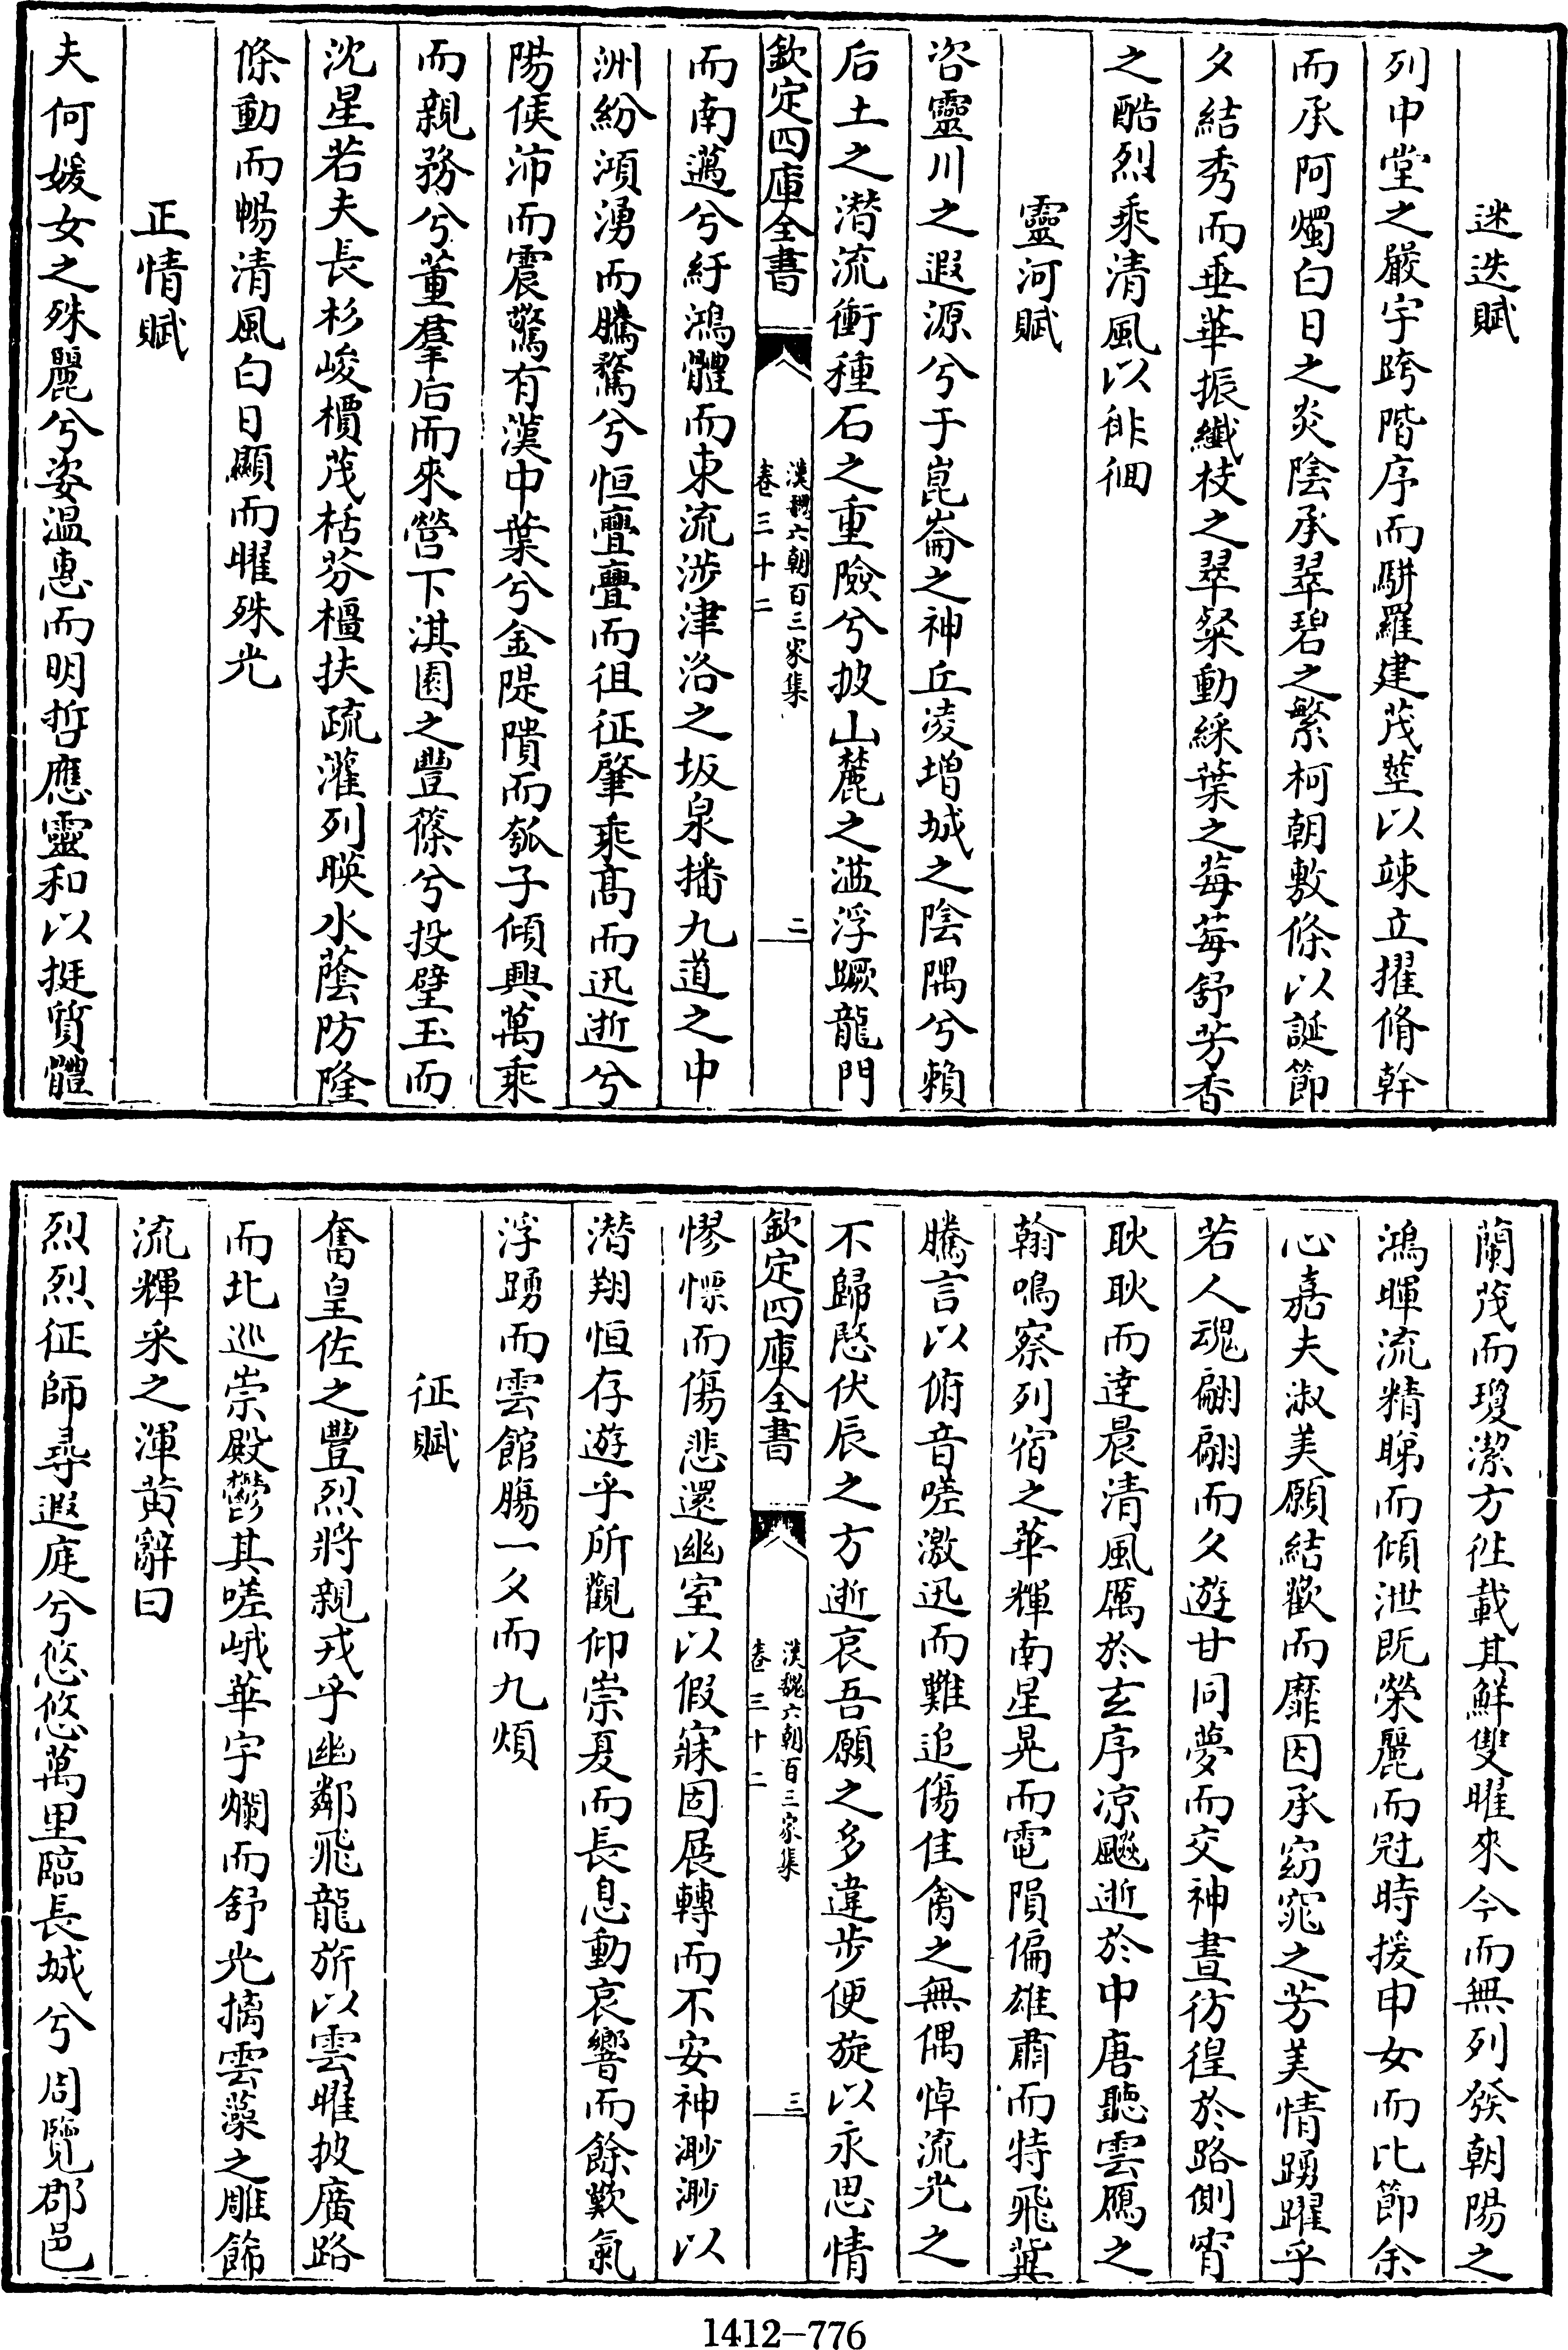 迷迭賦
列中堂之嚴宇跨階序而駢羅建茂莖以竦立擢脩幹
而承阿燭白日之炎陰承翠碧之繁柯朝敷條以誕節
夕結秀而垂華振纖枝之翠粲動綵葉之莓莓舒芳香
之酷烈乘清風以徘徊
靈河賦
咨靈川之遐源兮于崑崙之神丘凌增城之陰隅兮賴
后土之潛流衝種石之重險兮披山麓之溢浮蹶龍門
欽定四庫全書
漢魏六朝百三家集
卷三十二
二
而南邁兮紆鴻體而東流涉津洛之坂泉播九道之中
洲紛澒湧而騰騖兮恒亹亹而徂征肇乘高而迅逝兮
陽侯沛而震驚有漢中葉兮金隄隤而瓠子傾興萬乘
而親務兮董羣后而來營下淇園之豐篠兮投璧玉而
沈星若夫長杉峻檟茂栝芬橿扶疏灌列暎水蔭防隆
條動而暢清風白日顯而曜殊光
正情賦
夫何媛女之殊麗兮姿温惠而明哲應靈和以挺質體
蘭茂而瓊潔方往載其鮮雙曜來今而無列發朝陽之
鴻暉流精睇而傾泄既榮麗而冠時援申女而比節余
心嘉夫淑美願結歡而靡因承窈窕之芳美情踴躍乎
若人魂翩翩而夕遊甘同夢而交神晝彷徨於路側宵
耿耿而達晨清風厲於玄序凉飈逝於中唐聽雲鴈之
翰鳴察列宿之華輝南星晃而電隕偏雄肅而特飛冀
騰言以俯音嗟激迅而難追傷佳禽之無偶悼流光之
不歸愍伏辰之方逝哀吾願之多違步便旋以永思情
欽定四庫全書
漢魏六朝百三家集
卷三十二
三
憀慄而傷悲還幽室以假寐固展轉而不安神眇眇以
潛翔恒存遊乎所觀仰崇夏而長息動哀響而餘歎氣
浮踴而雲館腸一夕而九煩
征賦
奮皇佐之豐烈將親戎乎幽鄰飛龍旂以雲曜披廣路
而北巡崇殿鬱其嵯峨華宇爛而舒光摛雲藻之雕飾
流輝采之渾黄辭曰
烈烈征師尋遐庭兮悠悠萬里臨長城兮周覽郡邑
1412—776